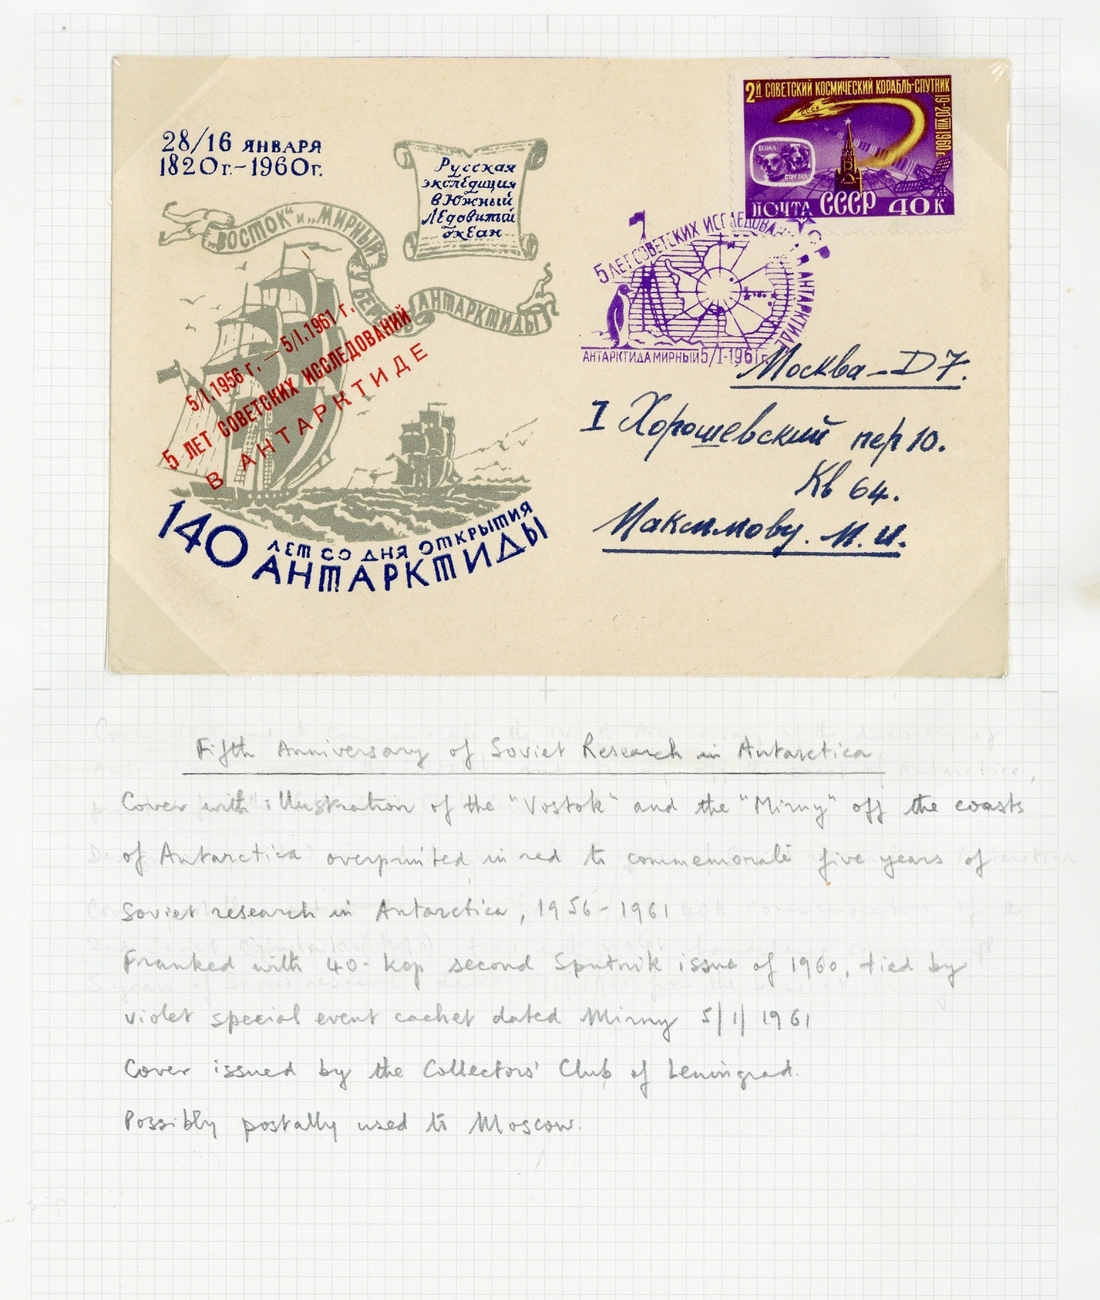 28/16 ЯНВАРЯ
1820г.-1960г.
Русская
экспедиция
в Южный
Ледовитый
океан
„ВОСТОК“ и „МИРНЫЙ“
У БЕРЕГОВ
АНТАРКТИДЫ
5/I.1956 г. — 5/I.1961 г.
5 ЛЕТ СОВЕТСКИХ ИССЛЕДОВАНИЙ
В АНТАРКТИДЕ
140 ЛЕТ СО ДНЯ ОТКРЫТИЯ
АНТАРКТИДЫ
2й СОВЕТСКИЙ КОСМИЧЕСКИЙ КОРАБЛЬ-СПУТНИК
19-20 VIII 1960г.
СССР
БЕЛКА
СТРЕЛКА
ПОЧТА СССР 40К
5 ЛЕТ СОВЕТСКИХ ИССЛЕДОВАНИЙ В АНТАРКТИДЕ
АНТАРКТИДА МИРНЫЙ 5/I-1961г.
Москва-Д7.
I Хорошевский пер 10.
Кв 64.
Максимову. М. И.
Fifth Anniversary of Soviet Research in Antarctica
Cover with illustration of the "Vostok" and the "Mirny" off the coasts
of Antarctica overprinted in red to commemorate five years of
Soviet research in Antarctica, 1956-1961
Franked with 40-kop second Sputnik issue of 1960, tied by
violet special event cachet dated Mirny 5/1/1961
Cover issued by the Collectors' Club of Leningrad.
Possibly postally used to Moscow.